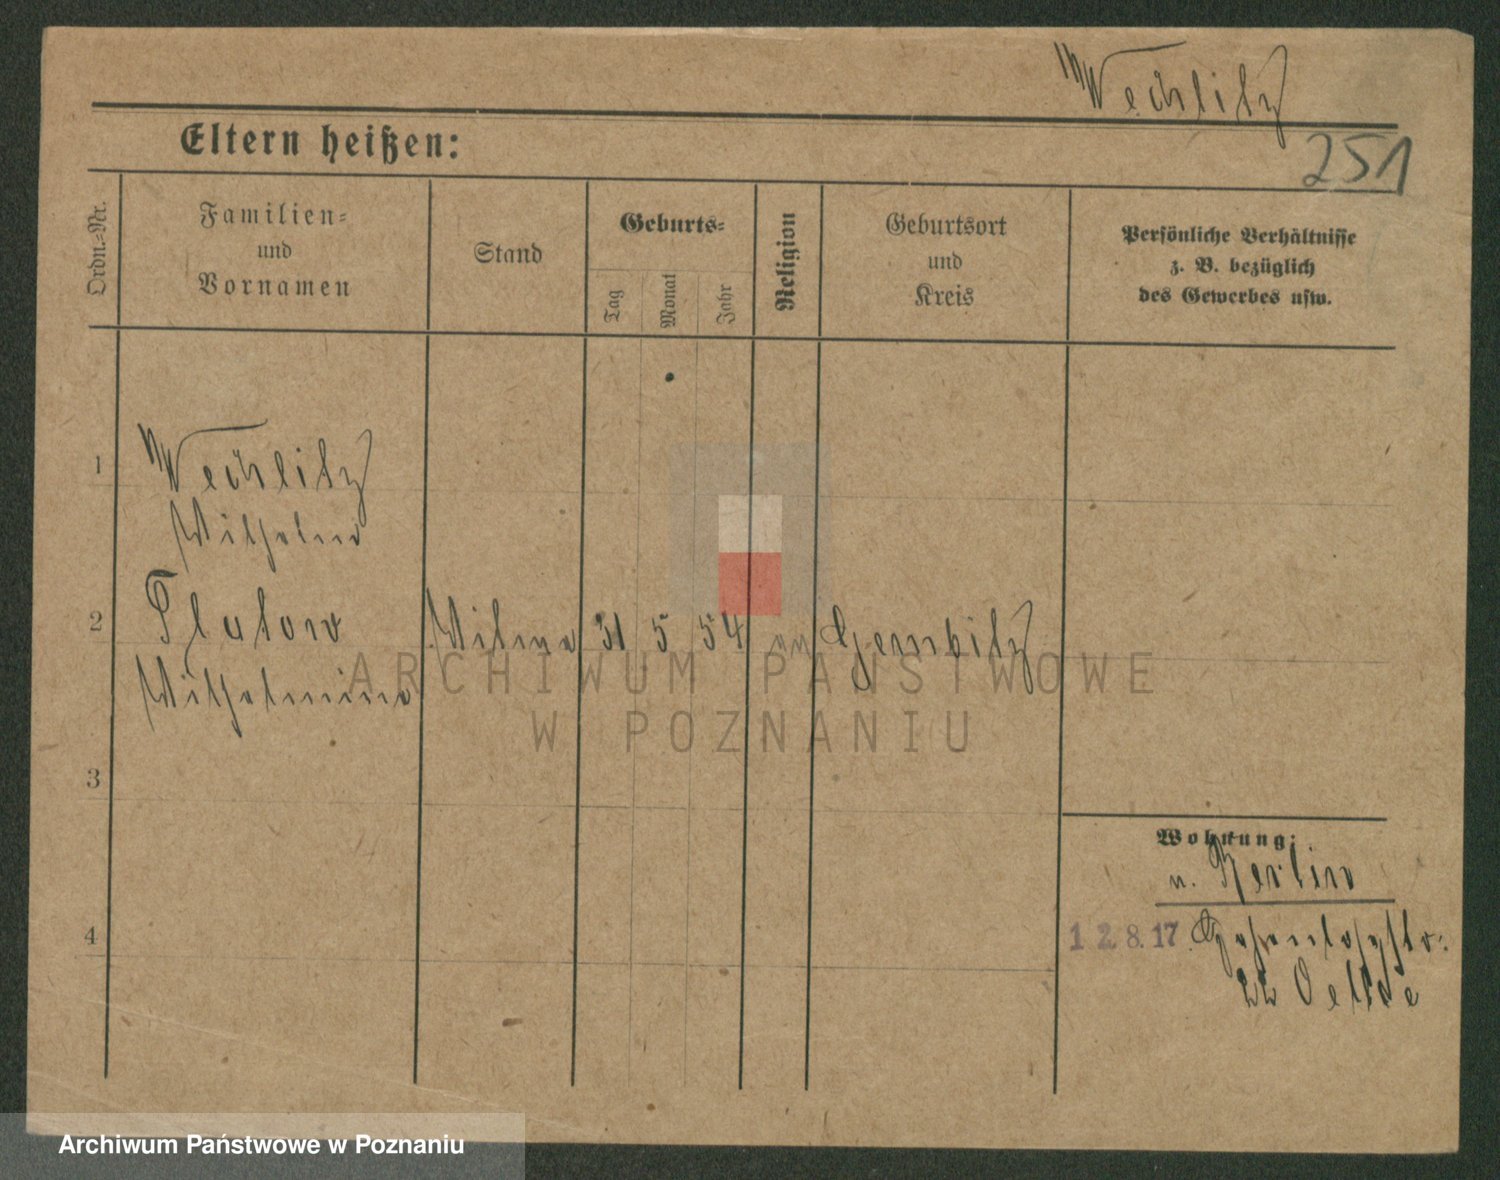 Wechlitz
Eltern heißen:
251
Ordn.-Nr.
Familien-
und
Vornamen
Stand
Geburts-
Tag
Monat
Jahr
Religion
Geburtsort
und
Kreis
Persönliche Verhältnisse
z. B. bezüglich
des Gewerbes usw.
1
Wechlitz
Wilhelm
2
Plutow
Wilhelmine
Witwe
31
5
54
ev
Gembitz
ARCHIWUM PAŃSTWOWE
W POZNANIU
3
4
Wohnung:
n. Berlin
12.8.17. Hohenlohestr.
22
Archiwum Państwowe w Poznaniu